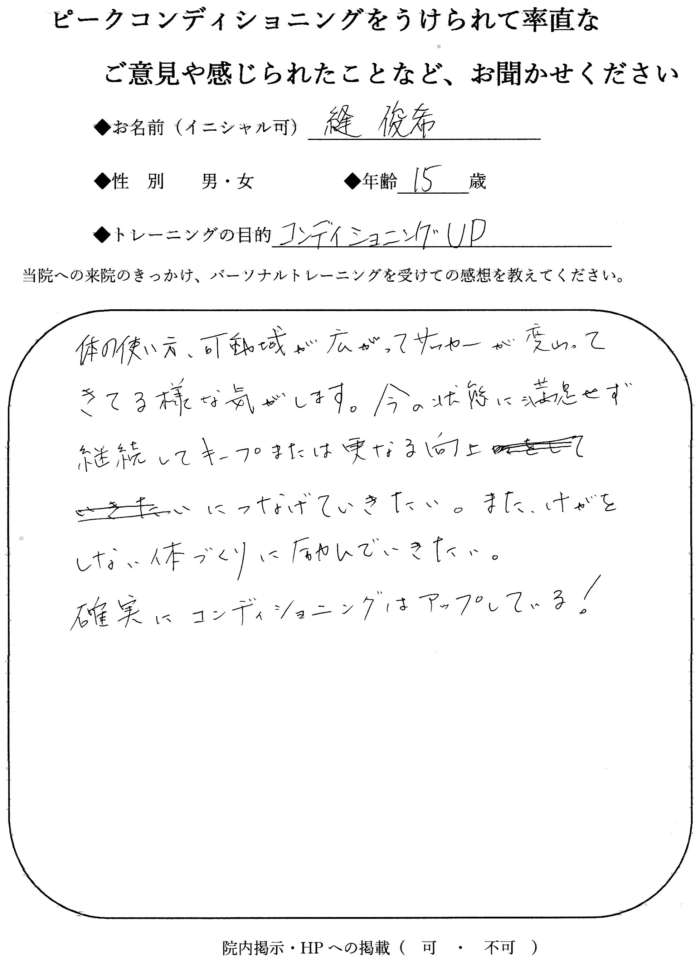 ピークコンディショニングをうけられて率直な
ご意見や感じられたことなど、お聞かせください
◆お名前（イニシャル可） 縫 俊希
◆性 別 男・女 ◆年齢 15 歳
◆トレーニングの目的 コンディショニングUP
当院への来院のきっかけ、パーソナルトレーニングを受けての感想を教えてください。
体の使い方、可動域が広がってサッカーが変わって
きてる様な気がします。今の状態に満足せず
継続してキープまたは更なる向上
につなげていきたい。また、けがを
しない体づくりに励んでいきたい。
確実にコンディショニングはアップしている！
院内掲示・HPへの掲載（ 可 ・ 不可 ）